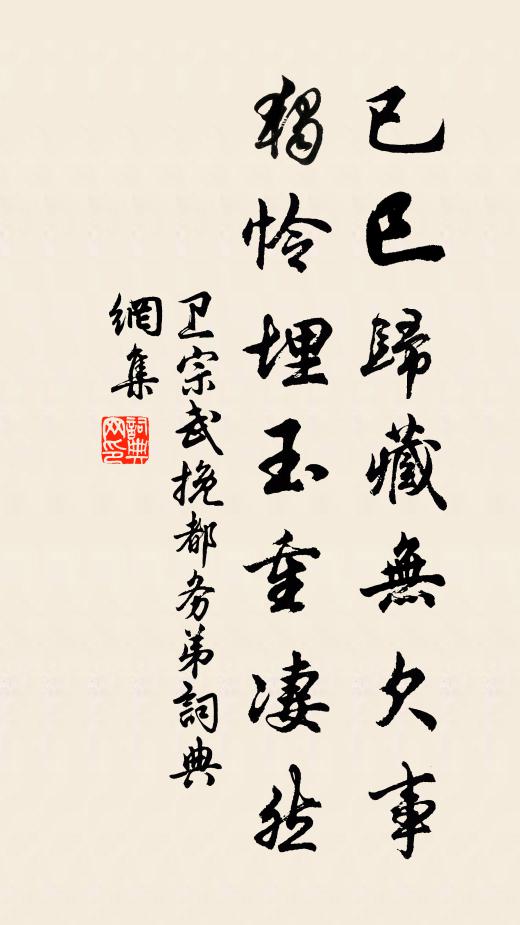 已巳歸藏無欠事
獨憐埋玉重凄然
卫宗武挽都务弟詞典
網集
詞典
网印